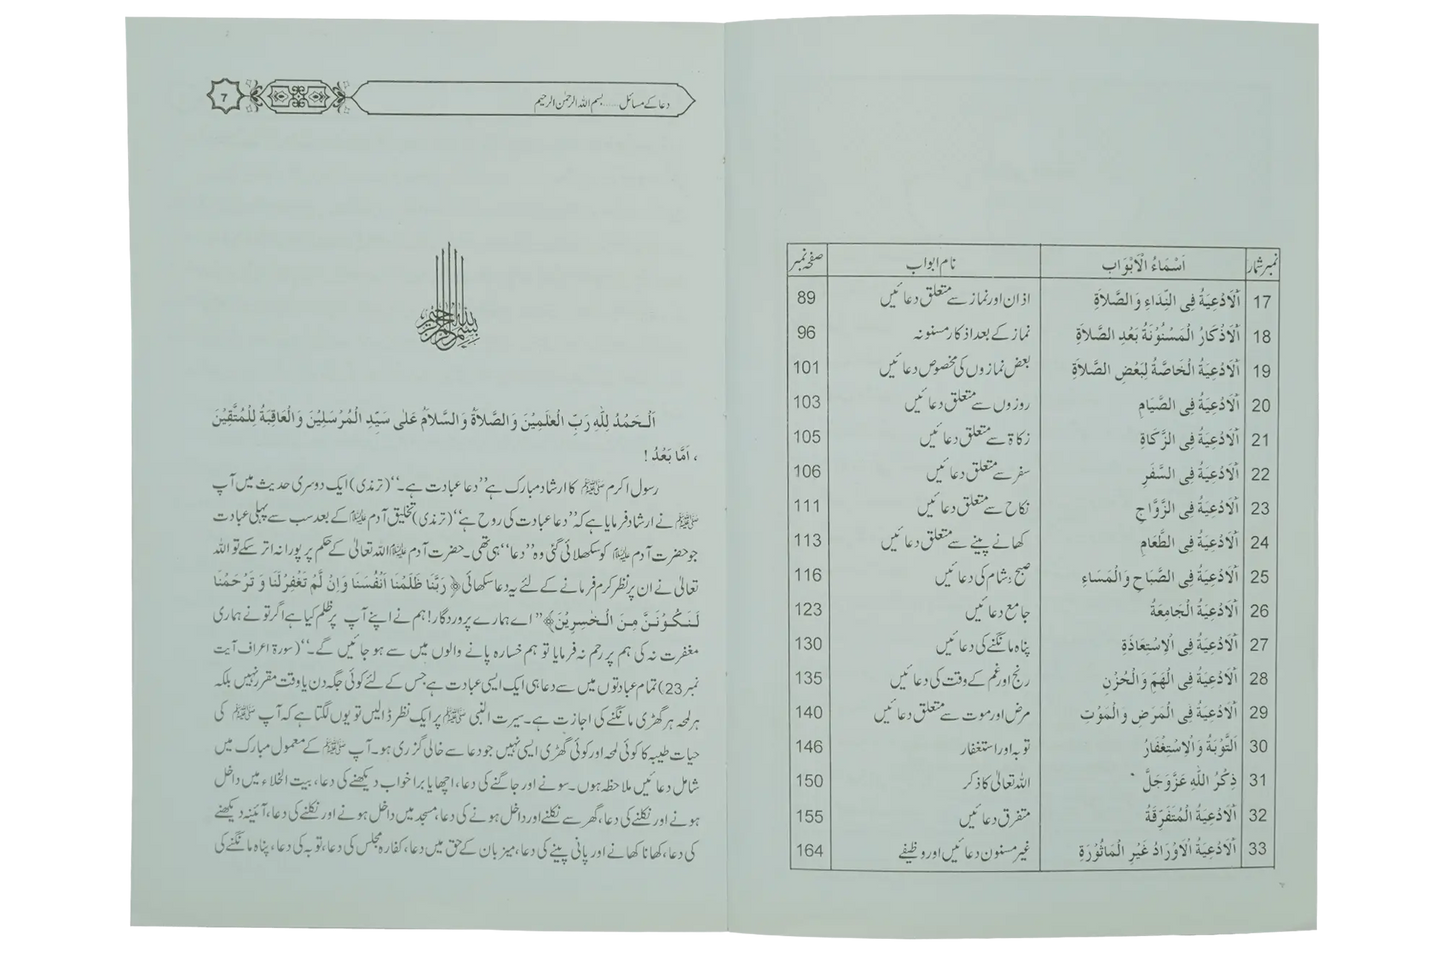 نمبر شمار	اَسْمَاءُ الْاَبْوَابِ	نام ابواب	صفحہ نمبر
17	اَلْاَدْعِيَةُ فِى النِّدَاءِ وَالصَّلاَةِ	اذان اور نماز سے متعلق دعائیں	89
18	اَلْاَذْكَارُ الْمَسْنُوْنَةُ بَعْدِ الصَّلاَةِ	نماز کے بعد اذکار مسنونہ	96
19	اَلْاَدْعِيَةُ الْخَاصَّةُ لِبَعْضِ الصَّلاَةِ	بعض نمازوں کی مخصوص دعائیں	101
20	اَلْاَدْعِيَةُ فِى الصِّيَامِ	روزوں سے متعلق دعائیں	103
21	اَلْاَدْعِيَةُ فِى الزَّكَاةِ	زکاۃ سے متعلق دعائیں	105
22	اَلْاَدْعِيَةُ فِى السَّفَرِ	سفر سے متعلق دعائیں	106
23	اَلْاَدْعِيَةُ فِى الزَّوَّاجِ	نکاح سے متعلق دعائیں	111
24	اَلْاَدْعِيَةُ فِى الطَّعَامِ	کھانے پینے سے متعلق دعائیں	113
25	اَلْاَدْعِيَةُ فِى الصَّبَاحِ وَالْمَسَاءِ	صبح و شام کی دعائیں	116
26	اَلْاَدْعِيَةُ الْجَامِعَةُ	جامع دعائیں	123
27	اَلْاَدْعِيَةُ فِى الْاِسْتِعَاذَةِ	پناہ مانگنے کی دعائیں	130
28	اَلْاَدْعِيَةُ فِى الْهَمِّ وَالْحُزْنِ	رنج اور غم کے وقت کی دعائیں	135
29	اَلْاَدْعِيَةُ فِى الْمَرَضِ وَالْمَوْتِ	مرض اور موت سے متعلق دعائیں	140
30	اَلتَّوْبَةُ وَالْاِسْتِغْفَارُ	توبہ اور استغفار	146
31	ذِكْرُ اللّٰهِ عَزَّوَجَلَّ	اللہ تعالیٰ کا ذکر	150
32	اَلْاَدْعِيَةُ الْمُتَفَرِّقَةُ	متفرق دعائیں	155
33	اَلْاَدْعِيَةُ الْاَوْرَادُ غَيْرِ الْمَاثُوْرَةِ	غیر مسنون دعائیں اور وظیفے	164
دعا کے مسائل ..... بسم اللہ الرحمٰن الرحیم	7
بسم الله الرحمن الرحيم
اَلْحَمْدُ لِلّٰهِ رَبِّ الْعٰلَمِيْنَ وَالصَّلاَةُ وَالسَّلاَمُ عَلٰى سَيِّدِ الْمُرْسَلِيْنَ وَالْعَاقِبَةُ لِلْمُتَّقِيْنَ
، اَمَّا بَعْدُ !
رسول اکرم ﷺ کا ارشاد مبارک ہے ’’دعا عبادت ہے۔‘‘ (ترمذی) ایک دوسری حدیث میں آپ
ﷺ نے ارشاد فرمایا ہے کہ ’’دعا عبادت کی روح ہے‘‘ (ترمذی) تخلیق آدم علیہ السلام کے بعد سب سے پہلی عبادت
جو حضرت آدم علیہ السلام کو سکھلائی گئی وہ ’’دعا‘‘ ہی تھی۔ حضرت آدم علیہ السلام اللہ تعالیٰ کے حکم پر پورا نہ اتر سکے تو اللہ
تعالیٰ نے ان پر نظر کرم فرمانے کے لئے یہ دعا سکھائی ﴿ رَبَّنَا ظَلَمْنَا اَنْفُسَنَا وَاِنْ لَّمْ تَغْفِرْلَنَا وَ تَرْحَمْنَا
لَنَكُوْنَنَّ مِنَ الْخٰسِرِيْنَ﴾ ’’اے ہمارے پروردگار! ہم نے اپنے آپ پر ظلم کیا ہے اگر تو نے ہماری
مغفرت نہ کی ہم پر رحم نہ فرمایا تو ہم خسارہ پانے والوں میں سے ہو جائیں گے۔‘‘ (سورۃ اعراف آیت
نمبر 23) تمام عبادتوں میں سے دعا ہی ایک ایسی عبادت ہے جس کے لئے کوئی جگہ دن یا وقت مقرر نہیں بلکہ
ہر لمحہ ہر گھڑی مانگنے کی اجازت ہے۔ سیرت النبی ﷺ پر ایک نظر ڈالیں تو یوں لگتا ہے کہ آپ ﷺ کی
حیات طیبہ کا کوئی لمحہ اور کوئی گھڑی ایسی نہیں جو دعا سے خالی گزری ہو۔ آپ ﷺ کے معمول مبارک میں
شامل دعائیں ملاحظہ ہوں۔ سونے اور جاگنے کی دعا، اچھا یا برا خواب دیکھنے کی دعا، بیت الخلاء میں داخل
ہونے اور نکلنے کی دعا، گھر سے نکلنے اور داخل ہونے کی دعا، مسجد میں داخل ہونے اور نکلنے کی دعا، آئینہ دیکھنے
کی دعا، کھانا کھانے اور پانی پینے کی دعا، میزبان کے حق میں دعا، کفارہ مجلس کی دعا، توبہ کی دعا، پناہ مانگنے کی